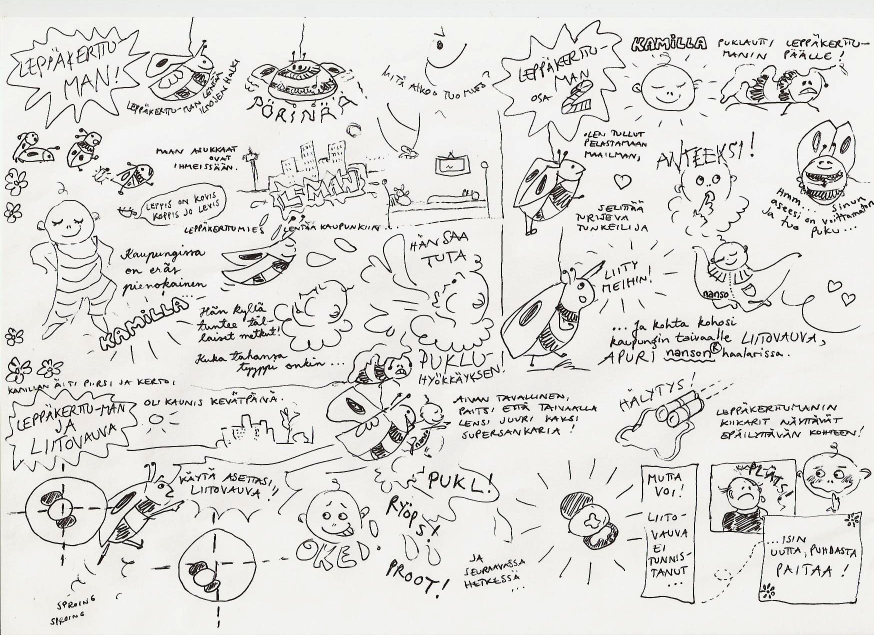 LEPPÄKERTTU-
MAN!
LEPPÄKERTTU-MAN
LENTÄÄ
ILMOJEN HALKI
PÖRINÄÄ
MITÄ AIKOO TUO MIES?
MAAN ASUKKAAT
OVAT
IHMEISSÄÄN.
LEPPIS ON KOVIS
KOPPIS JO LEVIS
LEPPÄKERTTUMIES LENTÄÄ KAUPUNKIIN.
Kaupungissa
on eräs
pienokainen
KAMILLA...
Hän kyllä
tuntee täl-
laiset metkut!
Kuka tahansa
tyyppi onkin...
HÄN SAA
TUTA
PUKLU-
HYÖKKÄYKSEN!
LEPPÄKERTTU-
MAN
OSA
2
KAMILLA PUKLAUTTI LEPPÄKERTTU-
MANIN
PÄÄLLE!
OLEN TULLUT
PELASTAMAAN
MAAILMAN,
SELITTÄÄ
TURISEVA
TUNKEILIJA
ANTEEKSI!
Hmm... sinun
aseesi on voittamaton
ja tuo
puku...
LIITY
MEIHIN!
nanso
...Ja kohta kohosi
kaupungin taivaalle LIITOVAUVA,
APURI nanson® haalarissa.
KAMILLAN ÄITI PIIRSI JA KERTOI
LEPPÄKERTTU-MAN
JA
LIITOVAUVA
OLI KAUNIS KEVÄTPÄIVÄ.
AIVAN TAVALLINEN,
PAITSI ETTÄ TAIVAALLA
LENSI JUURI KAKSI
SUPERSANKARIA!
HÄLYTYS!
LEPPÄKERTTUMANIN
KIIKARIT NÄYTTÄVÄT
EPÄILYTTÄVÄN KOHTEEN!
KÄYTÄ ASETTASI,
LIITOVAUVA!!
SPROING
SPROING
OKED!
PUKL!
RYÖPSY
PROOT!
JA
SEURAAVASSA
HETKESSÄ...
MUTTA
VOI!
LIITO-
VAUVA
EI
TUNNIS-
TANUT
...
PLÄTS!
...ISIN
UUTTA, PUHDASTA
PAITAA!